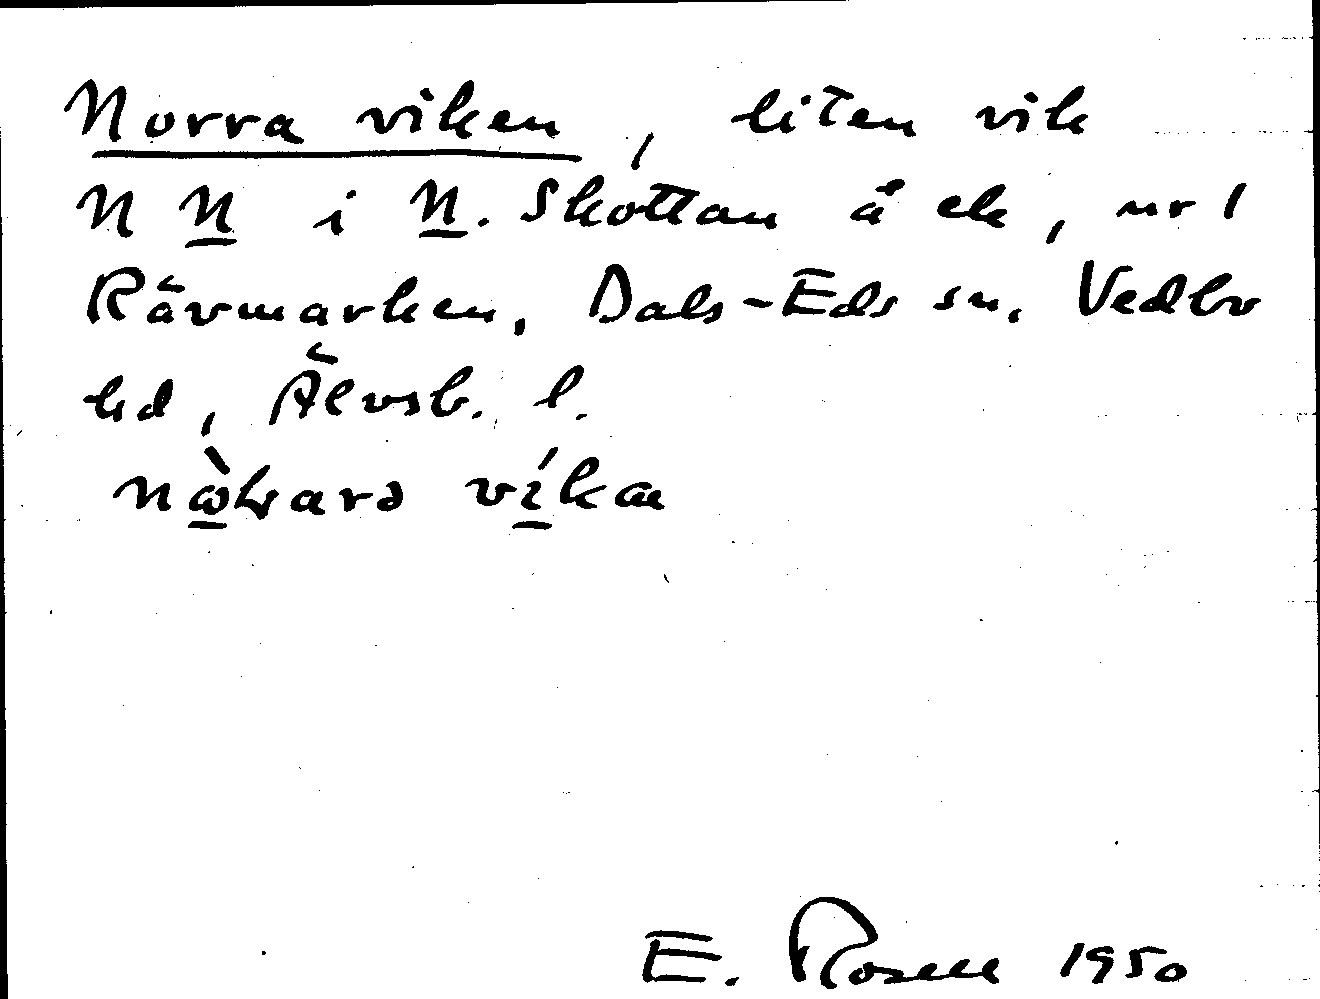 Norra viken, liten vik
N N i N. Skottan å ek, nr 1
Rävmarken, Dals-Eds sn. Vedbo
hd, Älvsb. l.
vìkan
E. Rosell 1950